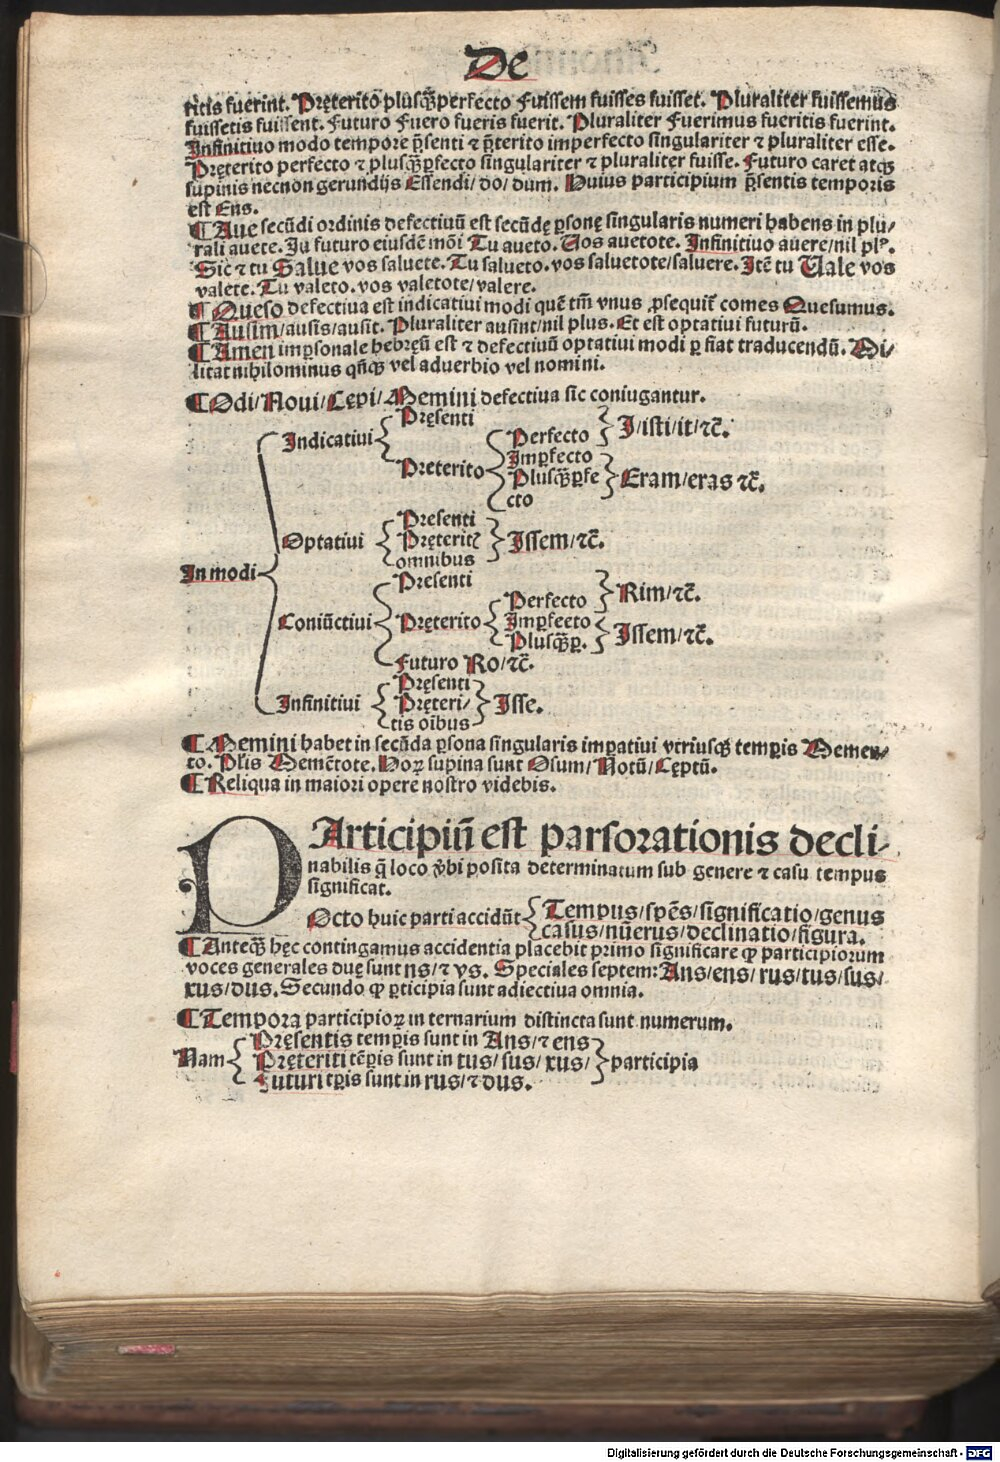 De
ritis fuerint. Pręterito plusq̃perfecto Fuissem fuisses fuisset. Pluraliter fuissemus
fuissetis fuissent. Futuro Fuero fueris fuerit. Pluraliter Fuerimus fueritis fuerint.
Infinitiuo modo tempore p̃senti ⁊ p̃terito imperfecto singulariter ⁊ pluraliter esse.
Pręterito perfecto ⁊ plusq̃ꝑfecto singulariter ⁊ pluraliter fuisse. Futuro caret atqꝫ
supinis necnon gerundijs Essendi/ do/ dum. Huius participium p̃sentis temporis
est Ens.
¶ Aue secũdi ordinis defectiuũ est secũdę ꝑsonę singularis numeri habens in plu/
rali auete. In futuro eiusdẽ mõi Tu aueto. Uos auetote. Infinitiuo auere/nil plꝰ.
Sic ⁊ tu Salue vos saluete. Tu salueto. vos saluetote/saluere. Itẽ tu Uale vos
valete. Tu valeto. vos valetote/ valere.
¶ Queso defectiua est indicatiui modi quẽ tm̃ vnus ꝓsequit̃ comes Quesumus.
¶ Ausim/ausis/ausit. Pluraliter ausint/nil plus. Et est optatiui futurũ.
¶ Amen imꝑsonale hebręũ est ⁊ defectiuũ optatiui modi ꝑ fiat traducendũ. Mi/
litat nihilominus qñqꝫ vel aduerbio vel nomini.
¶ Odi/Noui/Cępi/Memini defectiua sic coniugantur.
Pręsenti
Indicatiui
Perfecto
I/isti/it/⁊c̃.
Preterito
Imꝑfecto
Plusq̃ꝑfe
cto
Eram/eras ⁊c̃.
Presenti
Optatiui
Pręterit⁊
omnibus
Issem/⁊c̃.
In modi
Presenti
Perfecto
Rim/⁊c̃.
Coniũctiui
Pręterito
Imꝑfecto
Plusq̃ꝑ.
Issem/⁊c̃.
Futuro Ro/⁊c̃.
Pręsenti
Infinitiui
Pręteri/
tis oĩbus
Isse.
¶ Memini habet in secũda ꝑsona singularis imꝑatiui vtriusqꝫ temꝑis Memen/
to. Pl̃is Memẽtote. Hoꝝ supina sunt Osum/Notũ/Cęptũ.
¶ Reliqua in maiori opere nostro videbis.
PArticipiũ est parsorationis decli-
nabilis q̃ loco v̾bi posita determinatum sub genere ⁊ casu tempus
significat.
Octo huic parti accidũt
Tempus/spẽs/significatio/genus
casus/nũerus/declinatio/figura.
¶ Anteqꝫ hęc contingamus accidentia placebit primo significare ꝙ participiorum
voces generales duę sunt ns/⁊ vs. Speciales septem: Ans/ens/ rus/tus/sus/
xus/dus. Secundo ꝙ ꝑticipia sunt adiectiua omnia.
¶ Tempora participioꝝ in ternarium distincta sunt numerum.
Nam
Pręsentis temꝑis sunt in Ans/⁊ ens
Pręteriti tẽꝑis sunt in tus/ sus/ xus/
Futuri tꝑis sunt in rus/⁊ dus.
participia
Digitalisierung gefördert durch die Deutsche Forschungsgemeinschaft - DFG